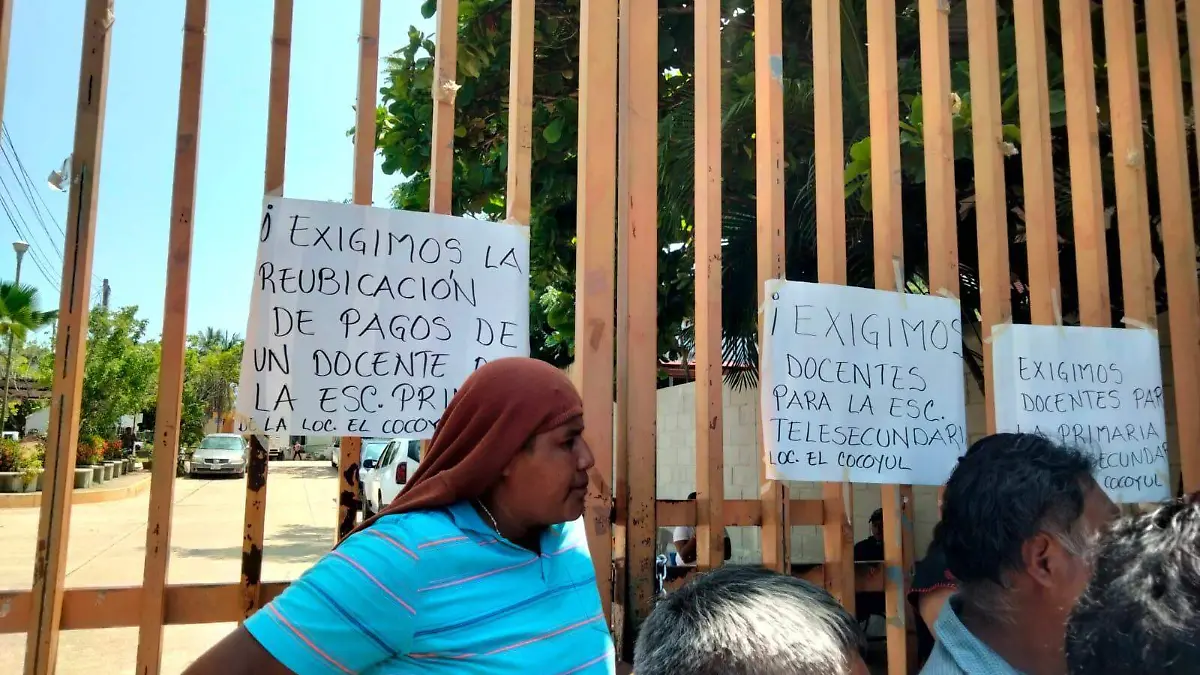 ¡ EXIGIMOS LA
REUBICACIÓN
DE PAGOS DE
UN DOCENTE
LA ESC. PRI
DE LA LOC. EL COCOYUL
¡ EXIGIMOS
DOCENTES
PARA LA ESC.
TELESECUNDARI
LOC. EL COCOYUL
EXIGIMOS
DOCENTES PAR
LA PRIMARIA
ECUNDAR
COCOYUL